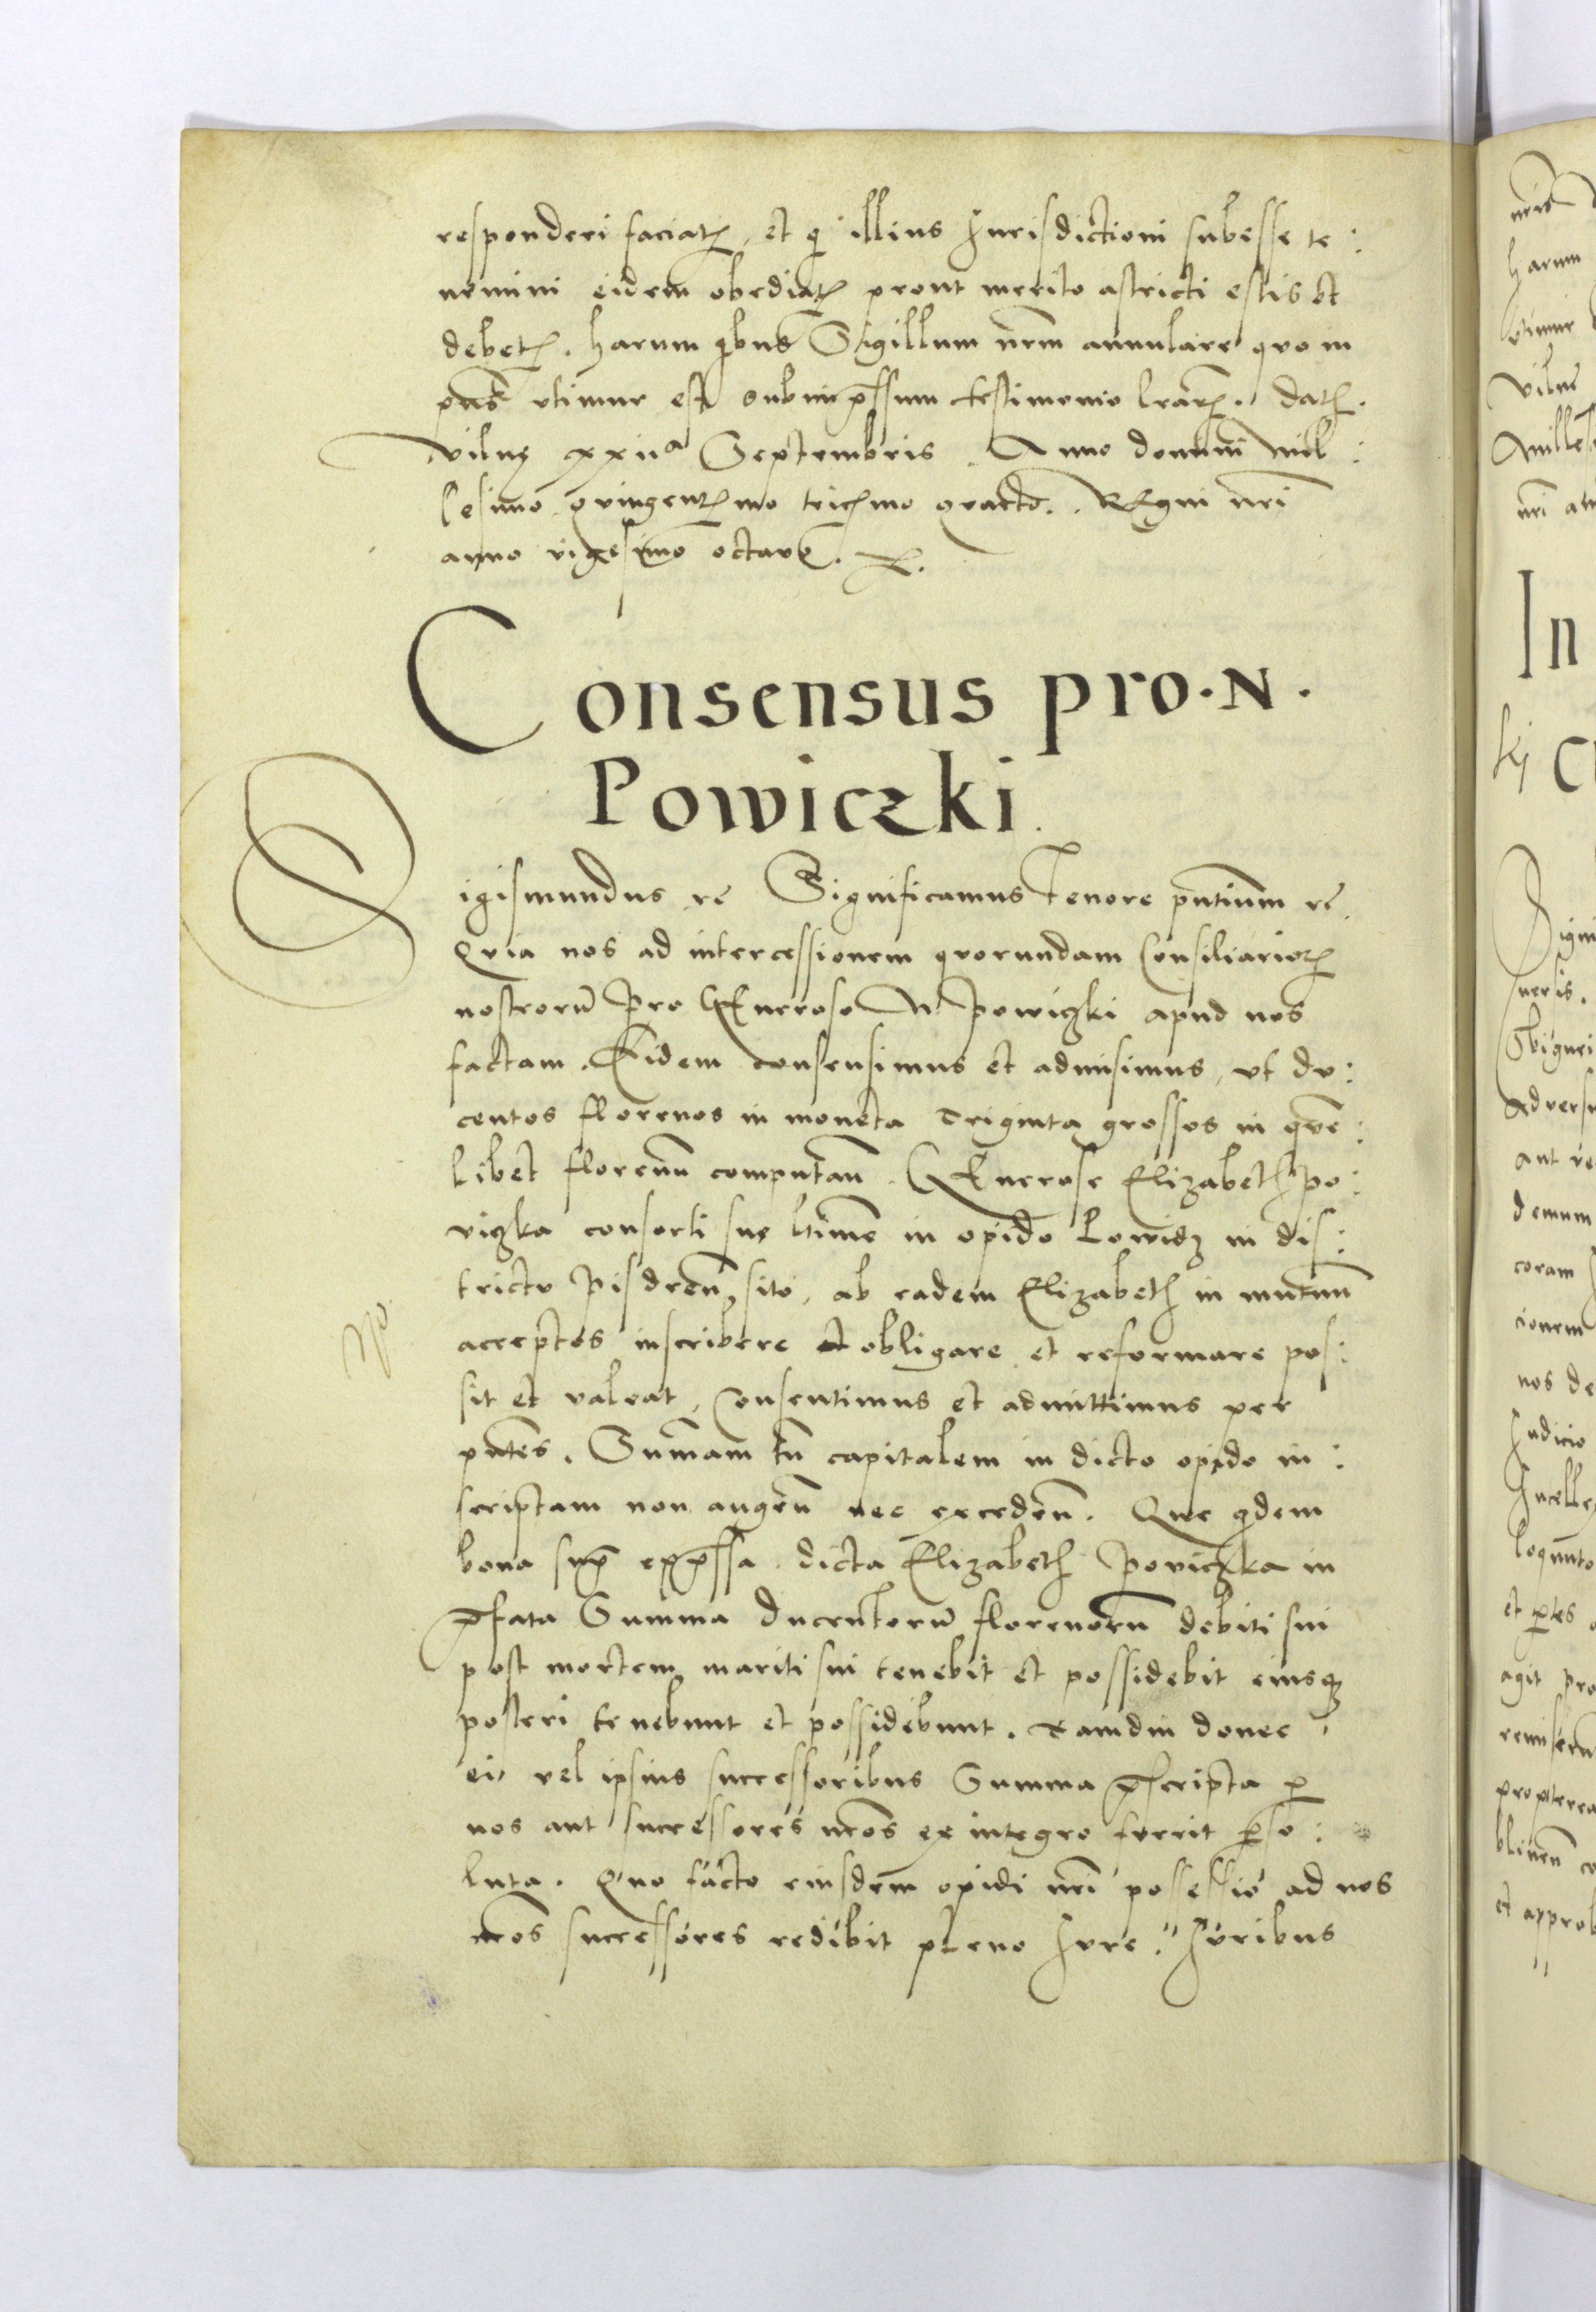 responderi faciatꝭ, et qͥ illius Jurisdictioni subesse te:
nemini eidem obediatꝭ prout merito astricti estis et
debetꝭ. Harum qͥbus Sigillum nrm̄ annulare quo in
pn̄s vtimur est subimp̄ssum testimonio lrāꝝ. Datꝭ.
Vilnę xxiiª Septembris. Anno domini mil:
lesimo quingentꝭmo tricꝭmo quarto. Regni nrī
anno vigesimo octauo.
Consensus pro . N .
Powiczki.
Sigismundus rc̄ Significamus tenore pn̄tium rc̄.
Quia nos ad intercessionem quorundam Consiliarioꝝ
nostrorū pro Generoso N powiczki apud nos
factam. Eidem consensimus et admisimus, vt du:
centos florenos in moneta triginta grossos in quē:
libet florenū computan̄. Generose Elizabeth po:
viczka consorti suę ltīme in opido Lowidz in dis:
trictu pisdren̄ sito, ab eadem Elizabeth in mutuū
acceptos inscribere et obligare et reformare pos:
sit et valeat, Consentimus et admittimus per
pn̄tes. Sum̄am tn̄ capitalem in dicto opido in:
scriptam non augen̄ nec exceden̄. Que qͥdem
bona sup̄ exp̄ssa dicta Elizabeth poviczka in
p̄fata Summa ducentorū florenorū debiti sui
post mortem mariti sui tenebit et possidebit eiusqꝫ
posteri tenebunt et possidebunt. tamdiu donec
ei vel ipsius successoribus Summa p̄scripta ꝑ
nos aut successores nrōs ex integro fuerit ꝑso:
luta. Quo facto eiusdem opidi nrī possessio ad nos
nrōs successores redibit pleno Jure. Juribus